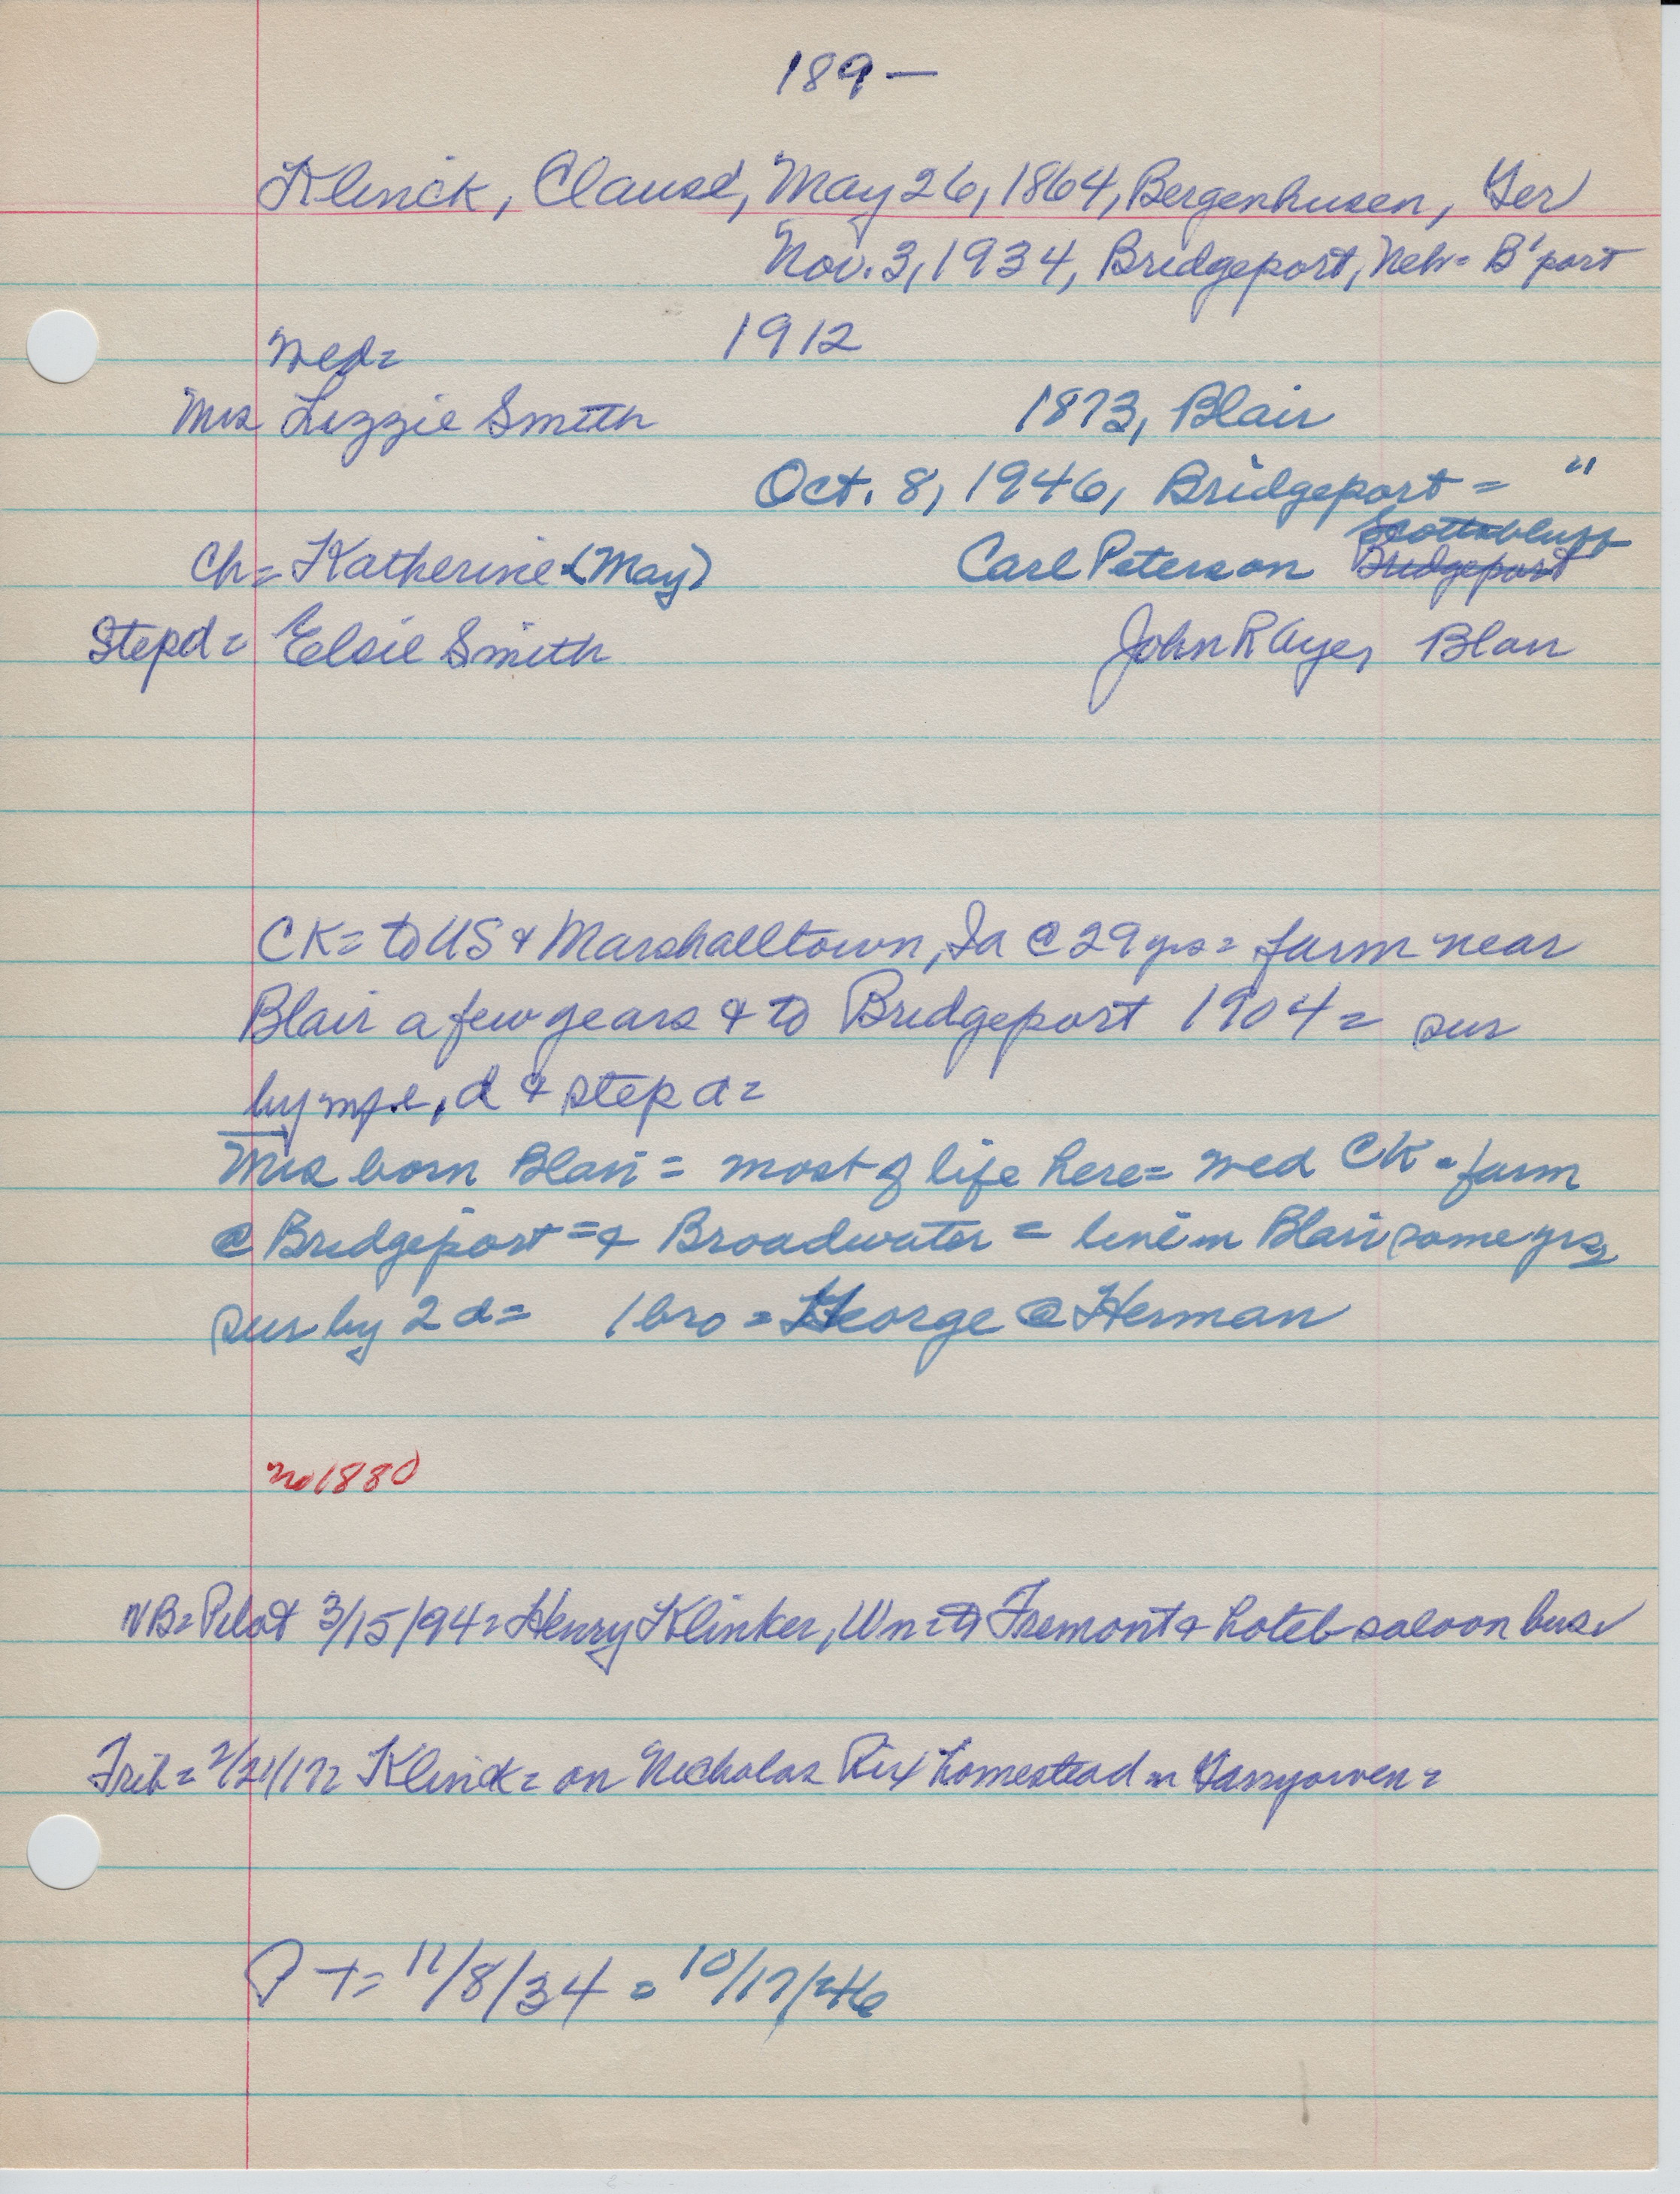 189—
Klinck, Claus, May 26, 1864, Bergenhusen, Ger
Nov. 3, 1934, Bridgeport, Neb = B'port
Wed= 1912
Mrs Lizzie Smith 1873, Blair
Oct. 8, 1946, Bridgeport = "
Scottsbluff
Ch= Katherine (May) Carl Peterson Bridgeport
Stepd= Elsie Smith John R Ayer, Blair
CK= to US & Marshalltown, Ia @ 29 yrs= farm near
Blair a few years & to Bridgeport 1904= sur
by wife, d & step d=
Mrs born Blair = most of life here= wed CK = farm
@ Bridgeport = & Broadwater = live in Blair some yrs
sur by 2 d= 1 bro = George @ Herman
no 1880
NB= Pilot 3/15/94= Henry Klinker, Wn= to Fremont & hotel-saloon bus
Trib= 2/21/17= Klinck= on Nicholas Rix homestead in Garryowen=
PT= 11/8/34 = 10/17/46